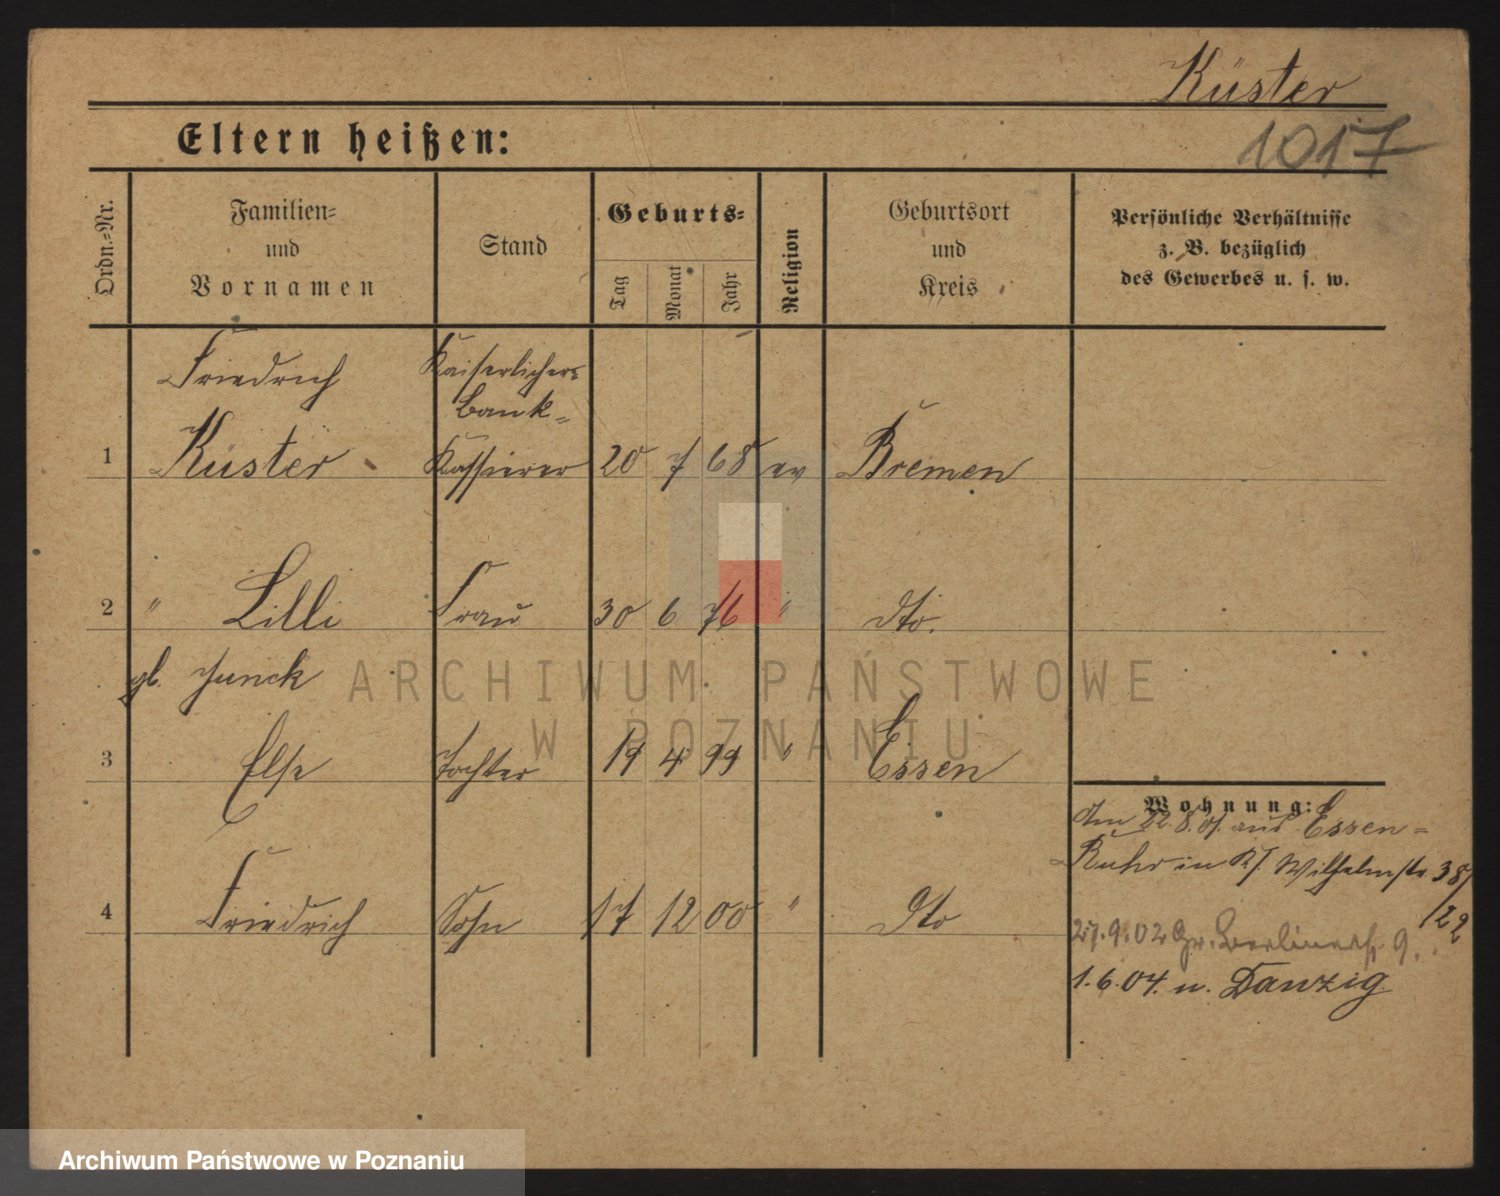 Küster
1017
Eltern heißen:
Ordn.-Nr.
Familien-
und
Vornamen
Stand
Geburts-
Tag
Monat
Jahr
Religion
Geburtsort
und
Kreis
Persönliche Verhältnisse
z. B. bezüglich
des Gewerbes u. s. w.
Friedrich Kaiserlicher
Bank-
1 Küster Kassierer 20 7 68 ev Bremen
2 " Lilli Frau 30 6 76 " dto.
gb. Junck
3 Else Tochter 19 4 99 " Essen
Wohnung:
Am 22.8.01. aus Essen-
Ruhr in Kf. Wilhelmstr. 38/
/22
4 Friedrich Sohn 17 12 00 " dto
27.9.02 Gr. Berlinerstr. 9.
1.6.04. n. Danzig
ARCHIWUM PAŃSTWOWE
W POZNANIU
Archiwum Państwowe w Poznaniu